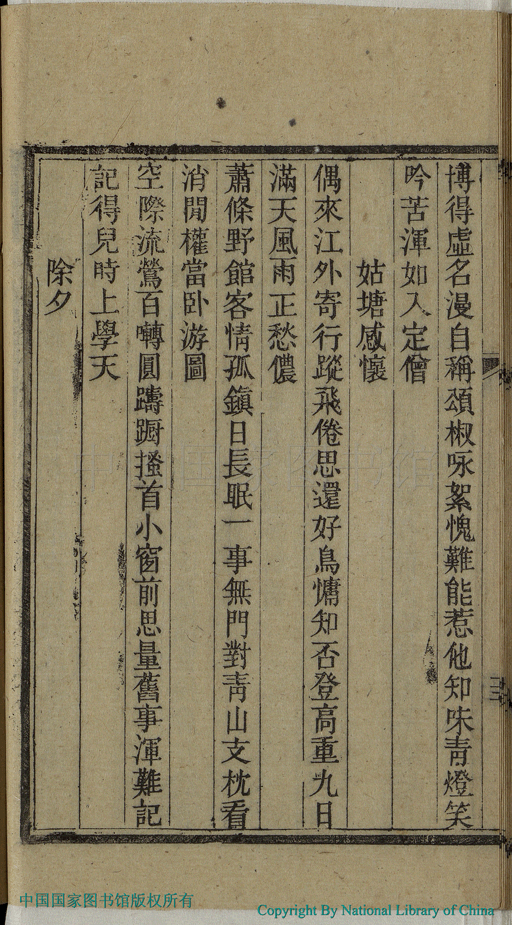 博得虛名漫自稱頌椒咏絮愧難能惹他知味青燈笑
吟苦渾如入定僧
姑塘感懷
偶來江外寄行蹤飛倦思還好鳥慵知否登高重九日
滿天風雨正愁儂
蕭條野館客情孤鎮日長眠一事無門對青山支枕看
消閒權當卧游圖
空際流鶯百囀圓躊蹰搔首小窗前思量舊事渾難記
記得兒時上學天
除夕
中国国家图书馆版权所有
Copyright By National Library of China